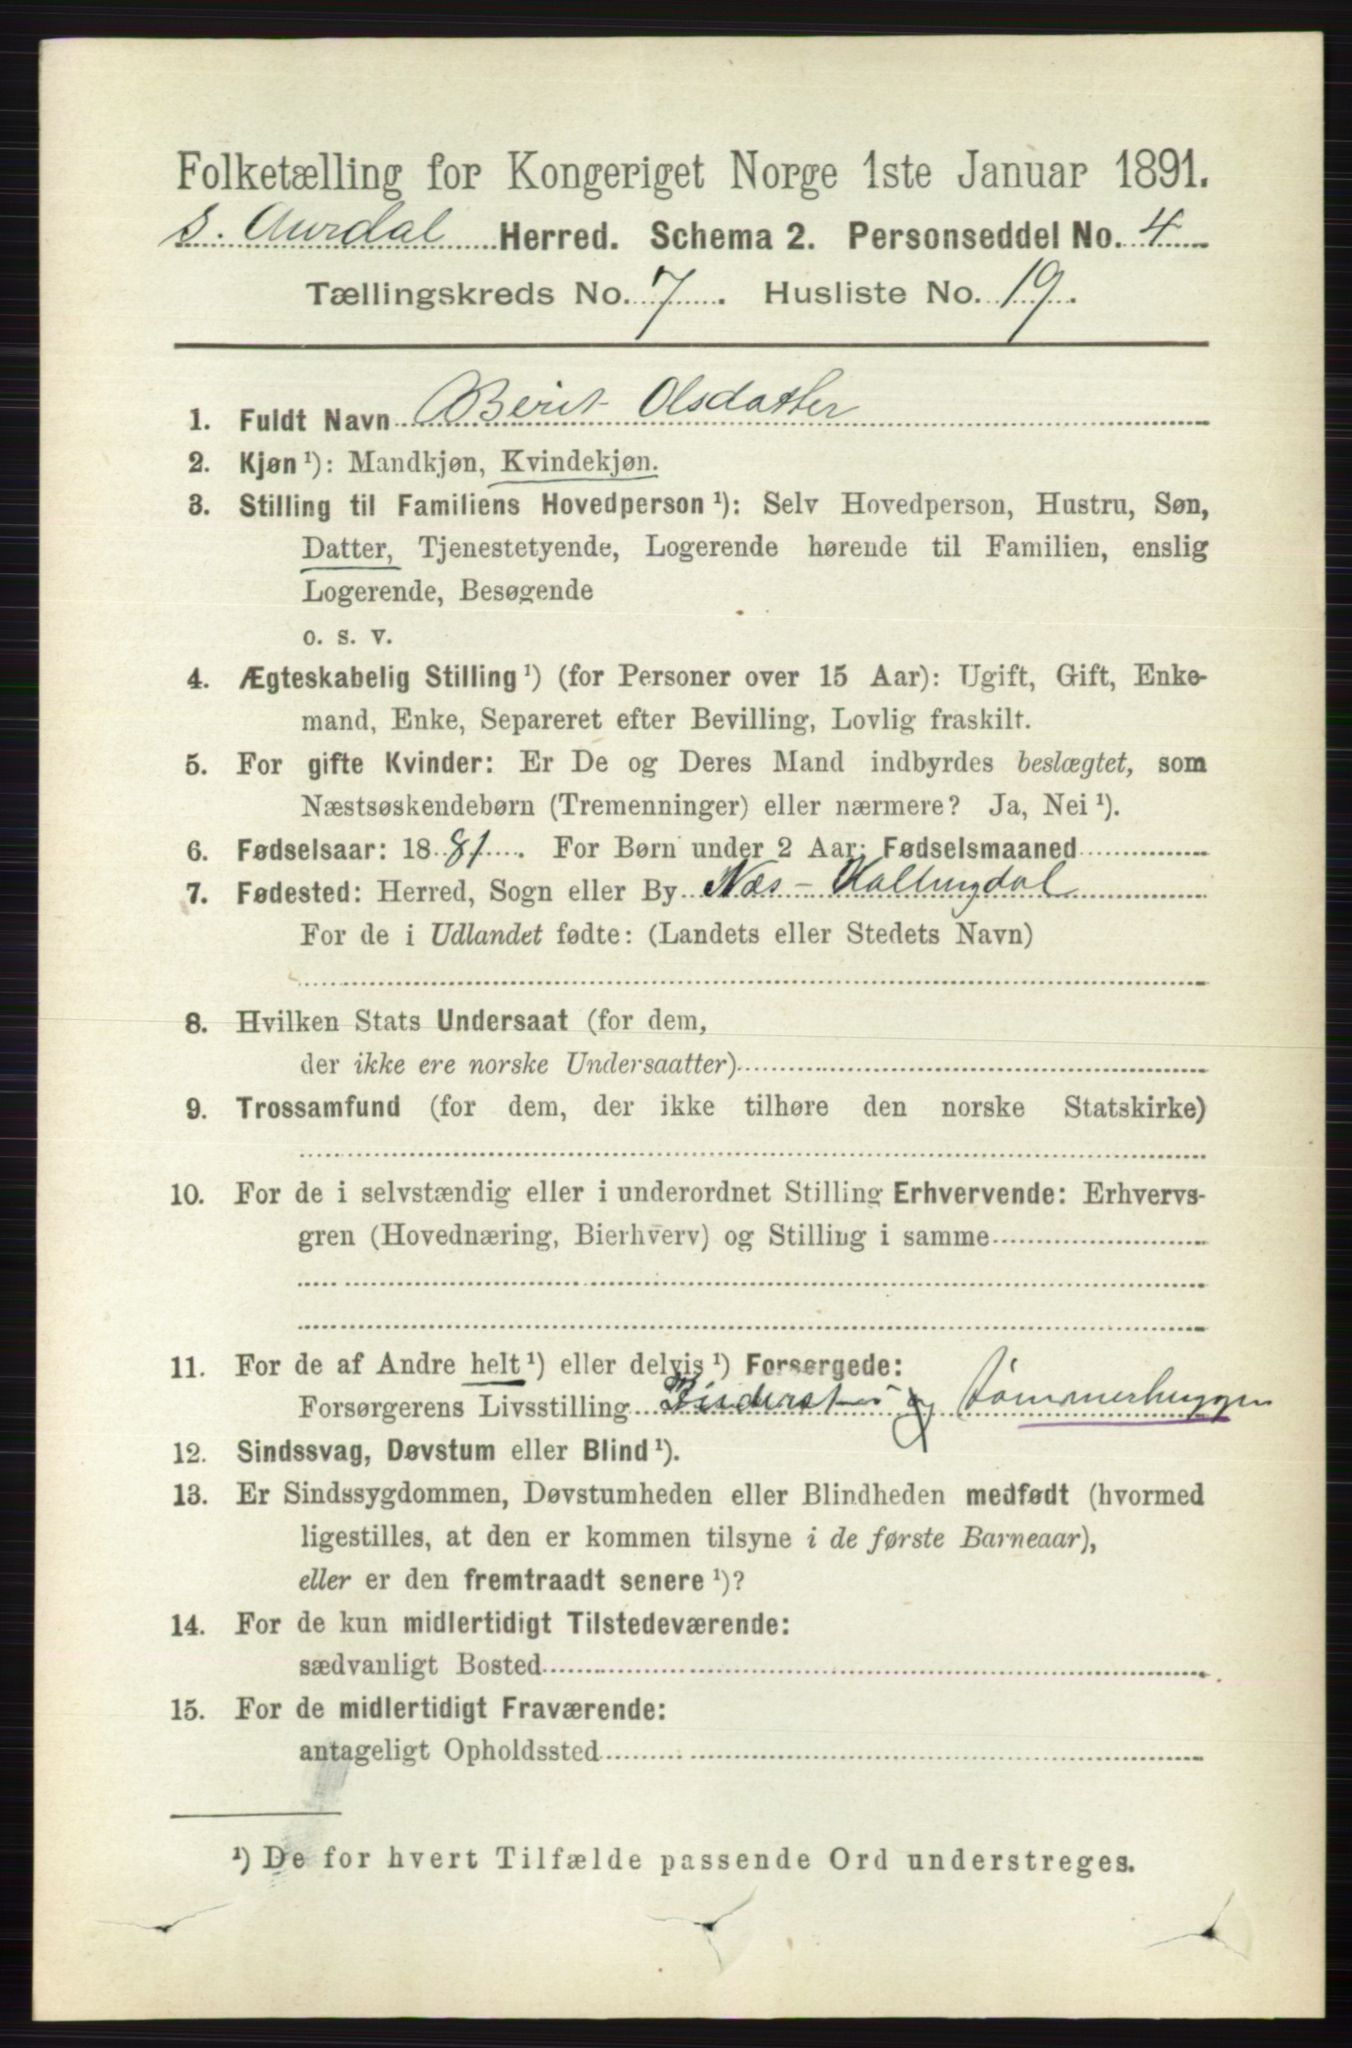 Folketælling for Kongeriget Norge 1ste Januar 1891.
S. Aurdal Herred. Schema 2. Personseddel No. 4
Tællingskreds No. 7. Husliste No. 19.
1. Fuldt Navn Berit Olsdatter
2. Kjøn ¹): Mandkjøn, Kvindekjøn.
3. Stilling til Familiens Hovedperson ¹): Selv Hovedperson, Hustru, Søn,
Datter, Tjenestetyende, Logerende hørende til Familien, enslig
Logerende, Besøgende
o. s. v.
4. Ægteskabelig Stilling ¹) (for Personer over 15 Aar): Ugift, Gift, Enke-
mand, Enke, Separeret efter Bevilling, Lovlig fraskilt.
5. For gifte Kvinder: Er De og Deres Mand indbyrdes beslægtet, som
Næstsøskendebørn (Tremenninger) eller nærmere? Ja, Nei ¹).
6. Fødselsaar: 1881. For Børn under 2 Aar: Fødselsmaaned
7. Fødested: Herred, Sogn eller By Næs - Hallingdal
For de i Udlandet fødte: (Landets eller Stedets Navn)
8. Hvilken Stats Undersaat (for dem,
der ikke ere norske Undersaatter)
9. Trossamfund (for dem, der ikke tilhøre den norske Statskirke)
10. For de i selvstændig eller i underordnet Stilling Erhvervende: Erhvervs-
gren (Hovednæring, Bierhverv) og Stilling i samme
11. For de af Andre helt ¹) eller delvis ¹) Forsørgede:
Forsørgerens Livsstilling og Tømmerhugger
12. Sindssvag, Døvstum eller Blind ¹).
13. Er Sindssygdommen, Døvstumheden eller Blindheden medfødt (hvormed
ligestilles, at den er kommen tilsyne i de første Barneaar),
eller er den fremtraadt senere ¹)?
14. For de kun midlertidigt Tilstedeværende:
sædvanligt Bosted
15. For de midlertidigt Fraværende:
antageligt Opholdssted
¹) De for hvert Tilfælde passende Ord understreges.